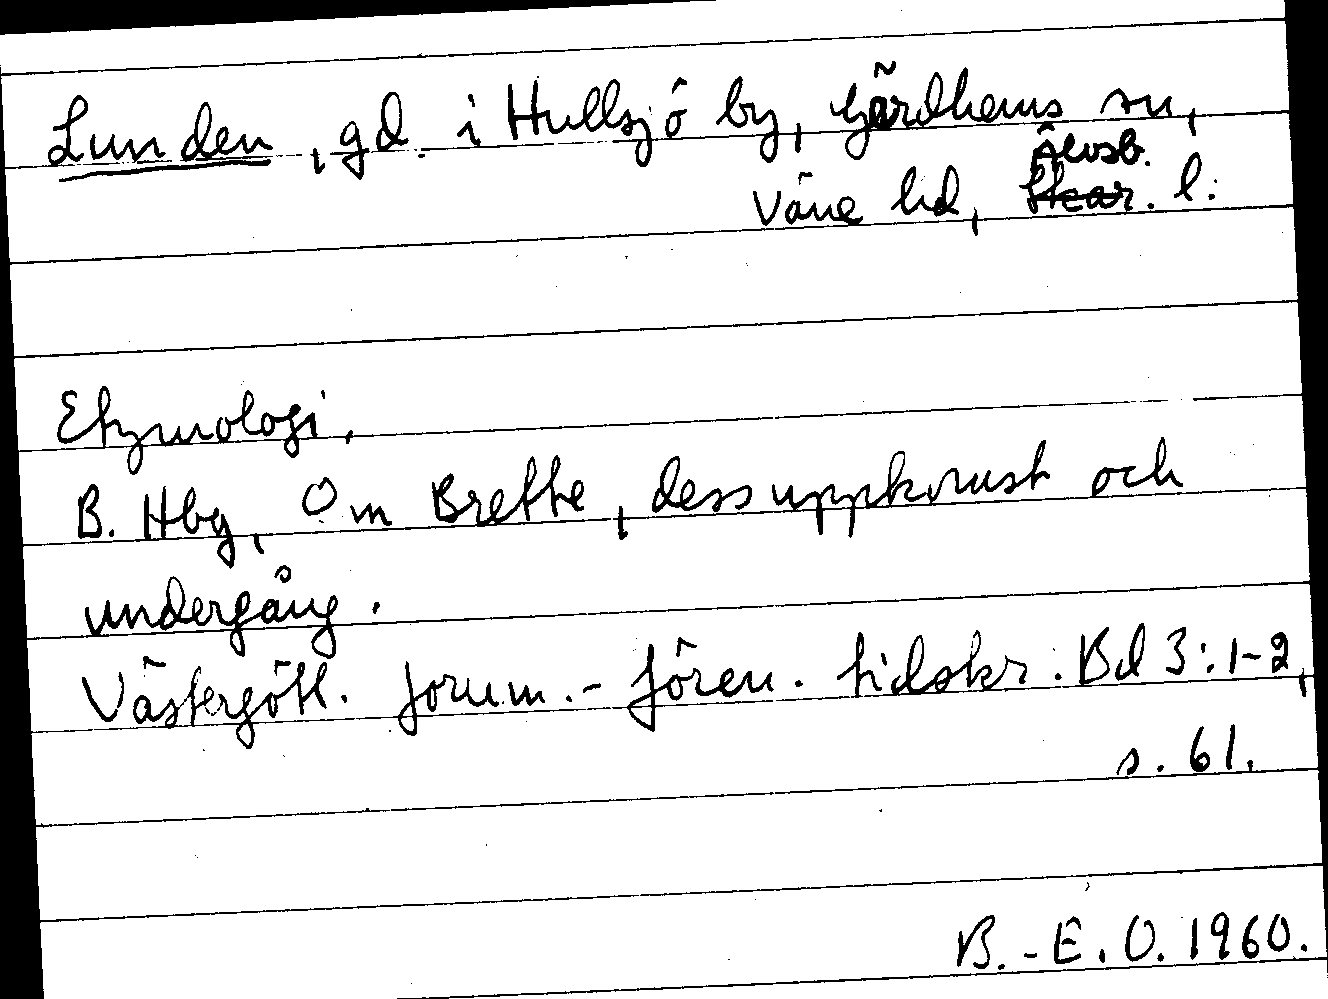 Lunden, gd. i Hullsjö by, Gärdhems sn,
Älvsb.
Väne hd, Skar. l.
Etymologi.
B. Hbg, Om Brette, dess uppkomst och
undergång.
Västergötl. fornm.- fören. tidskr. Bd 3:1-2,
s. 61.
B.-E. O. 1960.